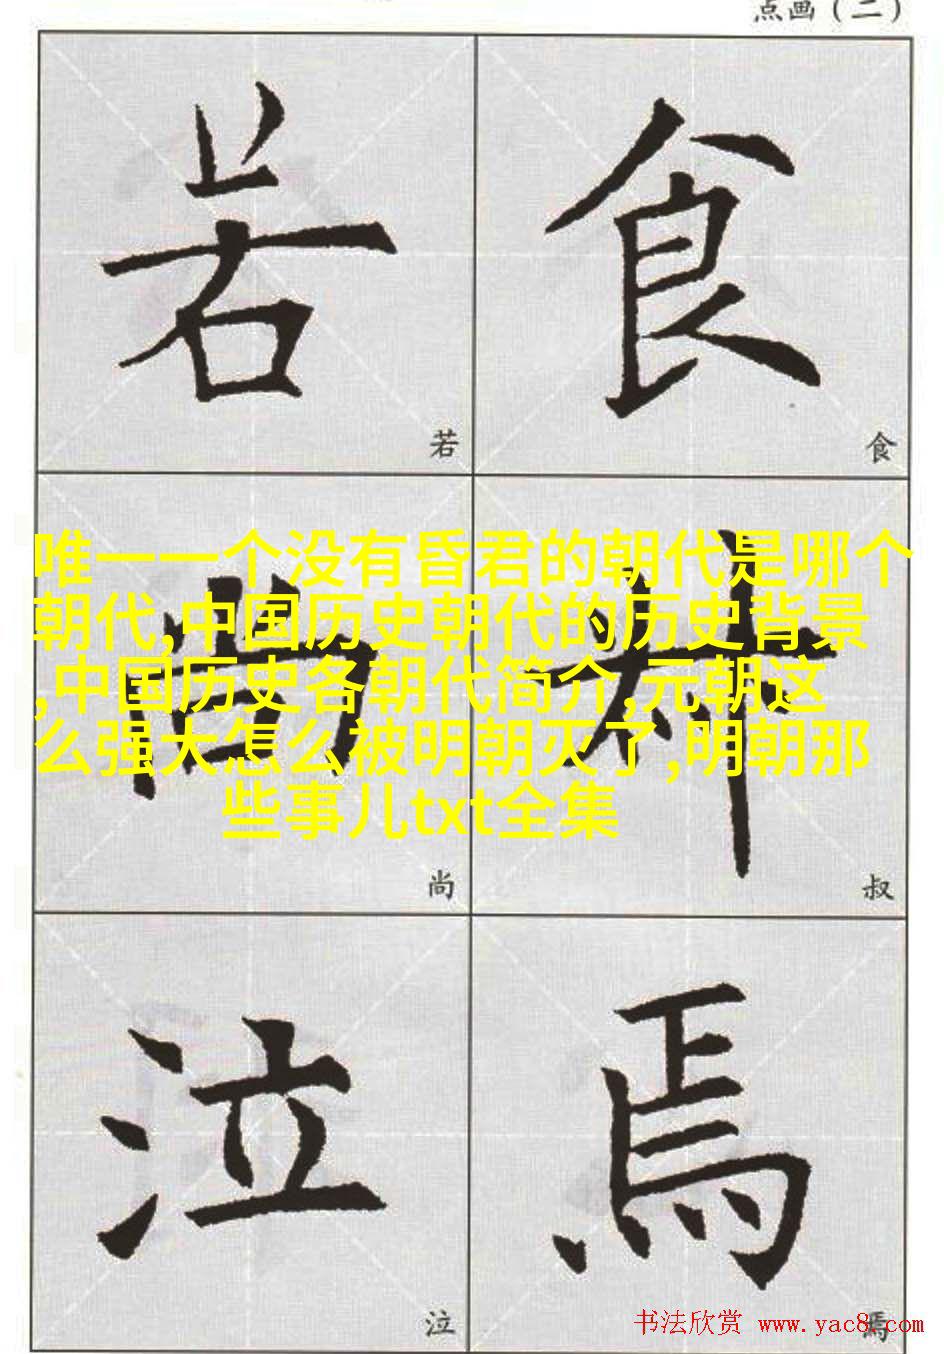 点画（二）
若 食
若 食
唯一一个没有昏君的朝代是哪个
朝代,中国历史朝代的历史背景
,中国历史各朝代简介,元朝这
么强大怎么被明朝灭了,明朝那
些事儿txt全集
尚 叔
尚 叔
泣 焉
泣 焉
书法欣赏 www.yac8.com